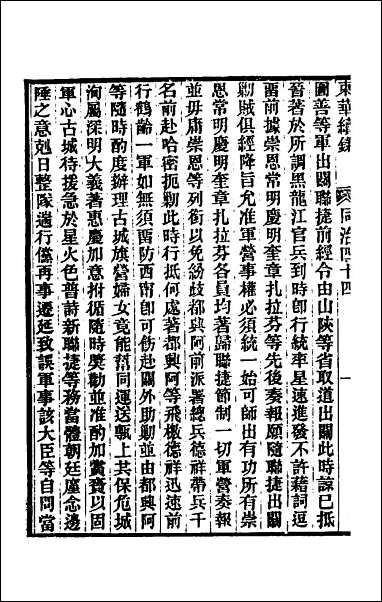 東華續錄 同治四十四 一
圖善等軍出關聯捷前經合由山陝等省取道出關此時諒已抵
晉著於所調黑龍江官兵到時卽行統率星速進發不許藉詞逗
留前據崇恩常明慶明奎章扎拉芬等先後奏報願隨聯捷出關
勦賊俱經降旨允准軍營事權必須統一始可師出有功所有崇
恩常明慶明奎章扎拉芬各員均著歸聯捷節制一切軍營奏報
並毋庸崇恩等列銜以免紛歧都興阿前派署總兵德祥帶兵千
名前赴哈密扼勦此時行抵何處著都興阿等飛檄德祥迅速前
行鶴齡一軍如無須留防西甯卽可飭赴關外助勦並由都興阿
等隨時酌度辦理古城旗營婦女竟能幫同運送甎上共保危城
洵屬深明大義著惠慶加意拊循隨時獎勸並准酌加賞賚以固
軍心古城待援急於星火色普詩新聯捷等務當體朝廷廑念邊
陲之意剋日整隊遄行儻再事遷延致誤軍事該大臣等自問當